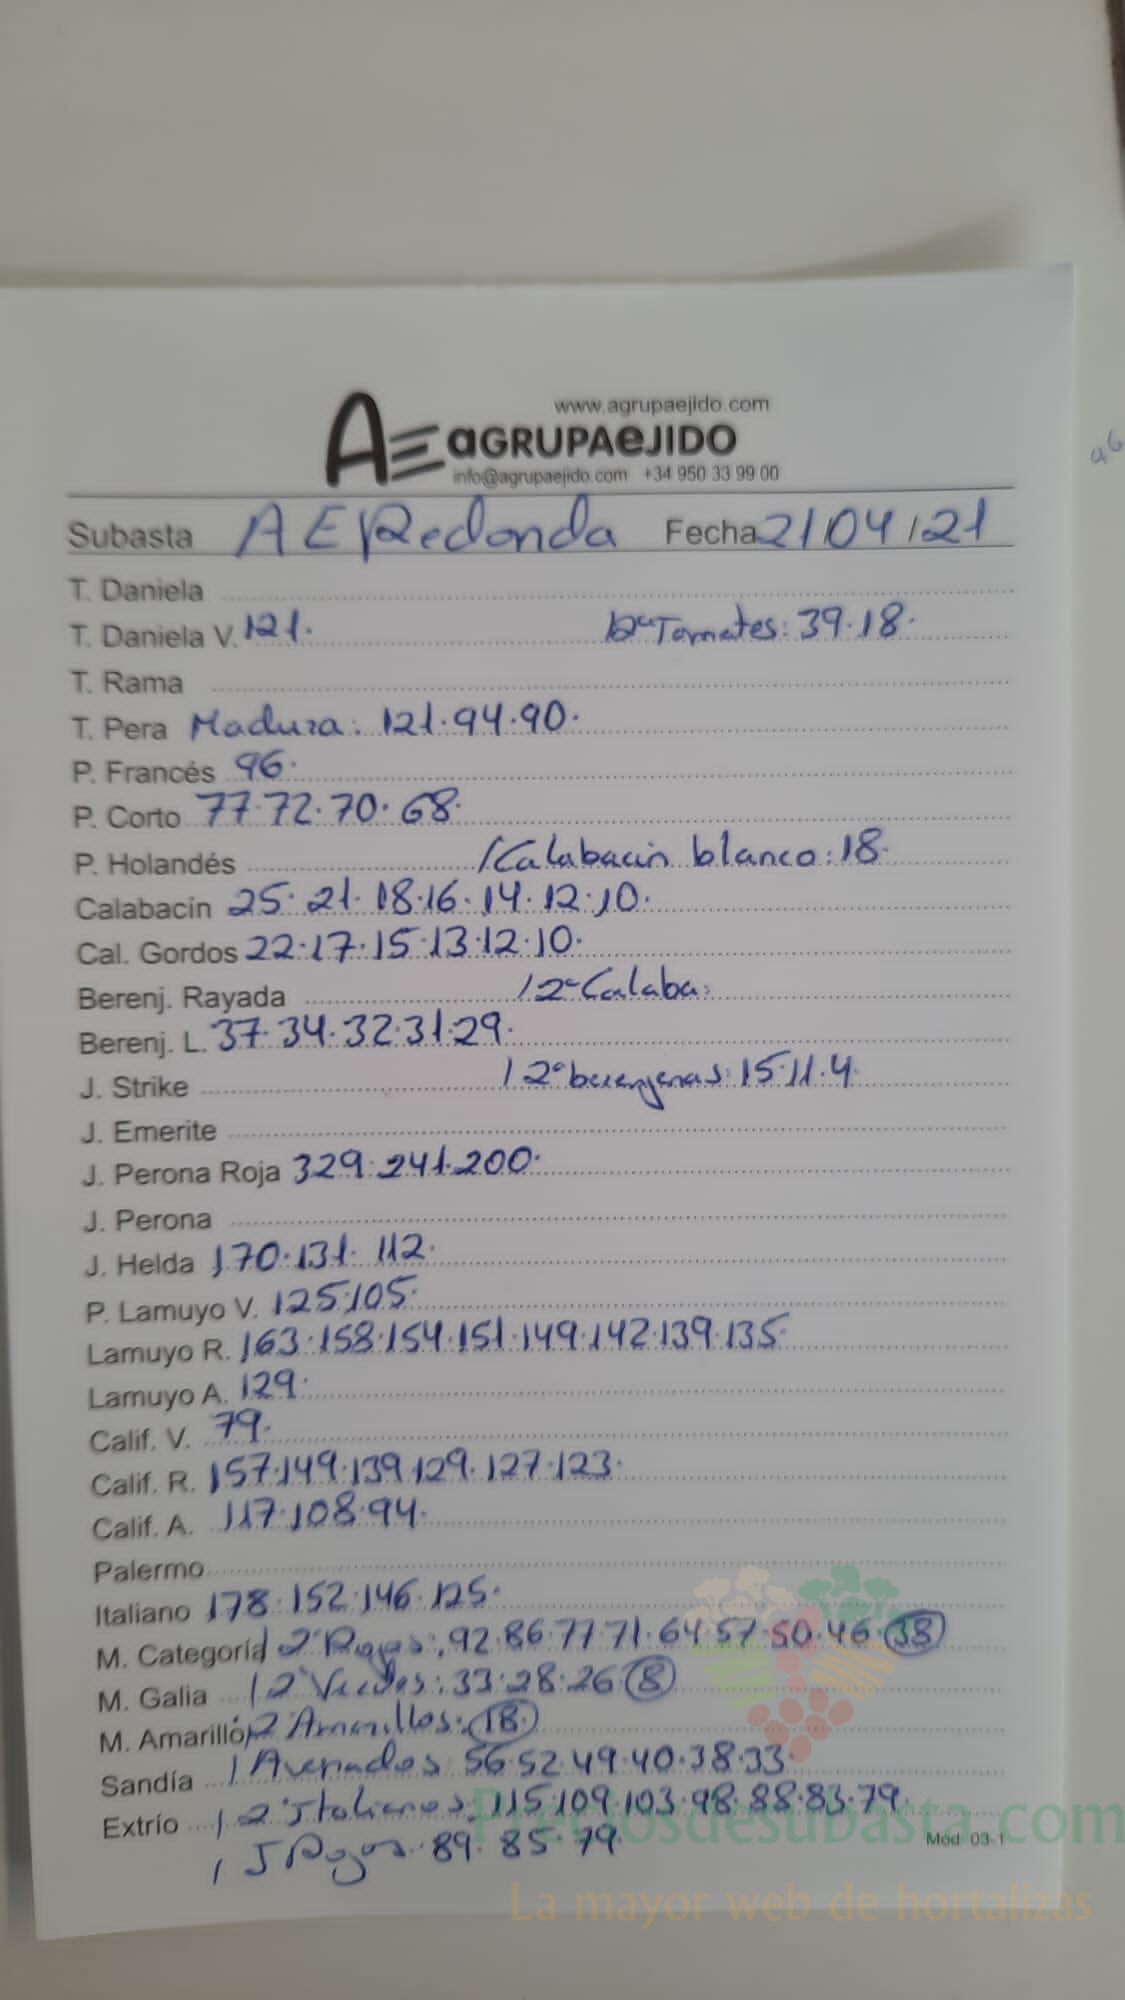 www.agrupaejido.com
AE aGRUPAeJIDO
info@agrupaejido.com +34 950 33 99 00
Subasta AE Redonda Fecha 21/04/21
T. Daniela
T. Daniela V. 121. Tomates: 39.18.
T. Rama
T. Pera Madura: 121.94.90.
P. Francés 96.
P. Corto 77.72.70.68.
P. Holandés /Calabacin blanco: 18.
Calabacín 25.21.18.16.14.12.10.
Cal. Gordos 22.17.15.13.12.10.
Berenj. Rayada /2ª Calaba:
Berenj. L. 37.34.32.31.29.
J. Strike /2ª berenjenas: 15.11.4.
J. Emerite
J. Perona Roja 329.241.200.
J. Perona
J. Helda 170.131.112.
P. Lamuyo V. 125.105.
Lamuyo R. 163.158.154.151.149.142.139.135.
Lamuyo A. 129.
Calif. V. 79.
Calif. R. 157.149.139.129.127.123.
Calif. A. 117.108.94.
Palermo
Italiano 178.152.146.125.
M. Categoría /2ª Rojos: 92.86.77.71.64.57.50.46.38
M. Galia /2ª Verdes: 33.28.26.8
M. Amarillo /2ª Amarillos: 18.
Sandía / 56.52.49.40.38.33.
Extrío /2ª Italianos: 115.109.103.98.88.83.79.
/ J Rojos. 89.85.79.
Mod. 03-1
Preciosdesubasta.com
La mayor web de hortalizas
a6